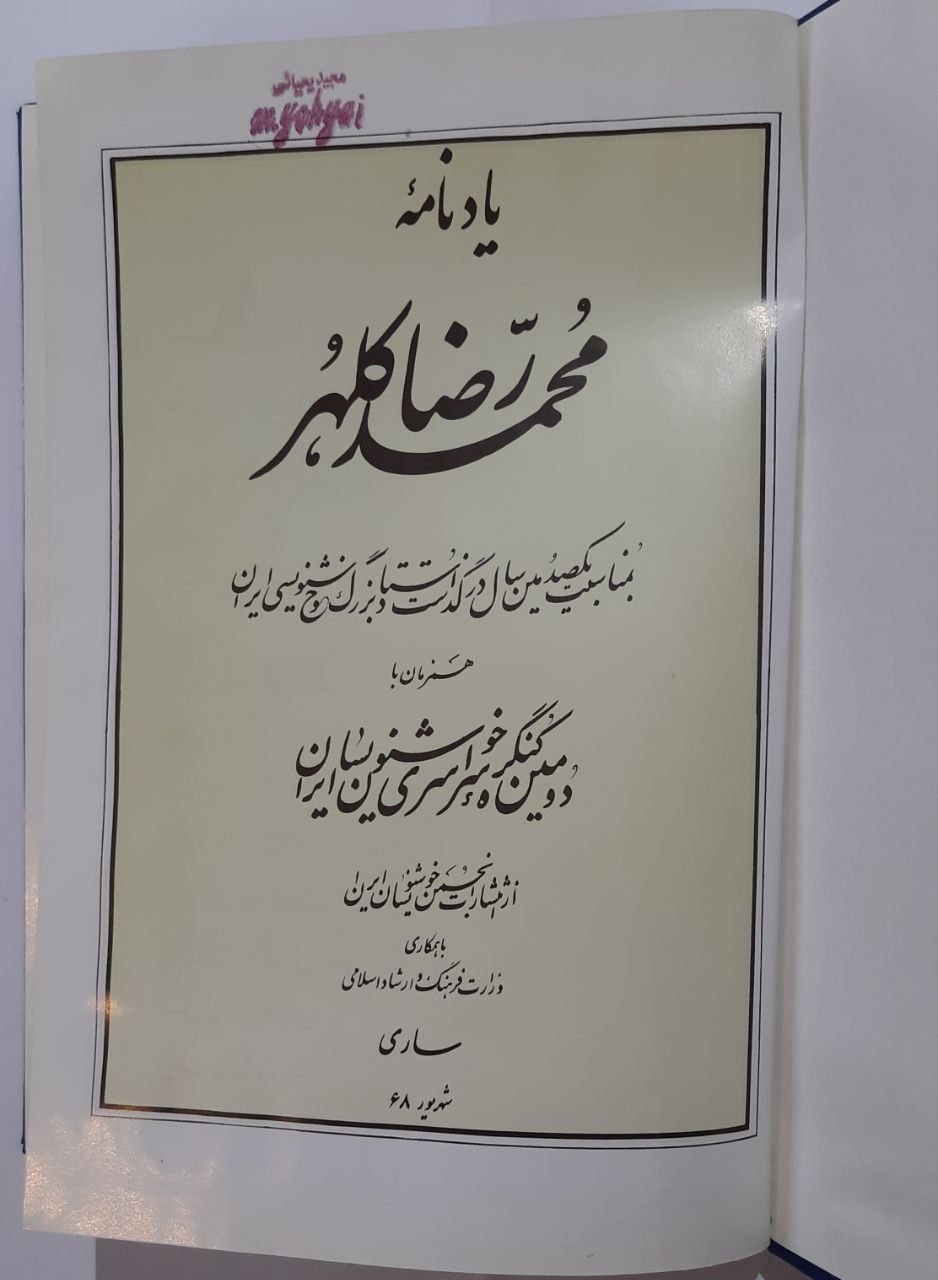 مجید یحیائی
m.yahyai
یادنامهٔ
مُحمّد رّضا کلهُر
بمُناسبت یکصدُمین سال درگذشت اُستاد بزرگ خوشنویسی ایران
همزمان با
دُومین کنگره سراسری خوشنویسان ایران
از انتشارات انجمن خوشنویسان ایران
با همکاری
وزارت فرهنگ و ارشاد اسلامی
ساری
شهریور ۶۸